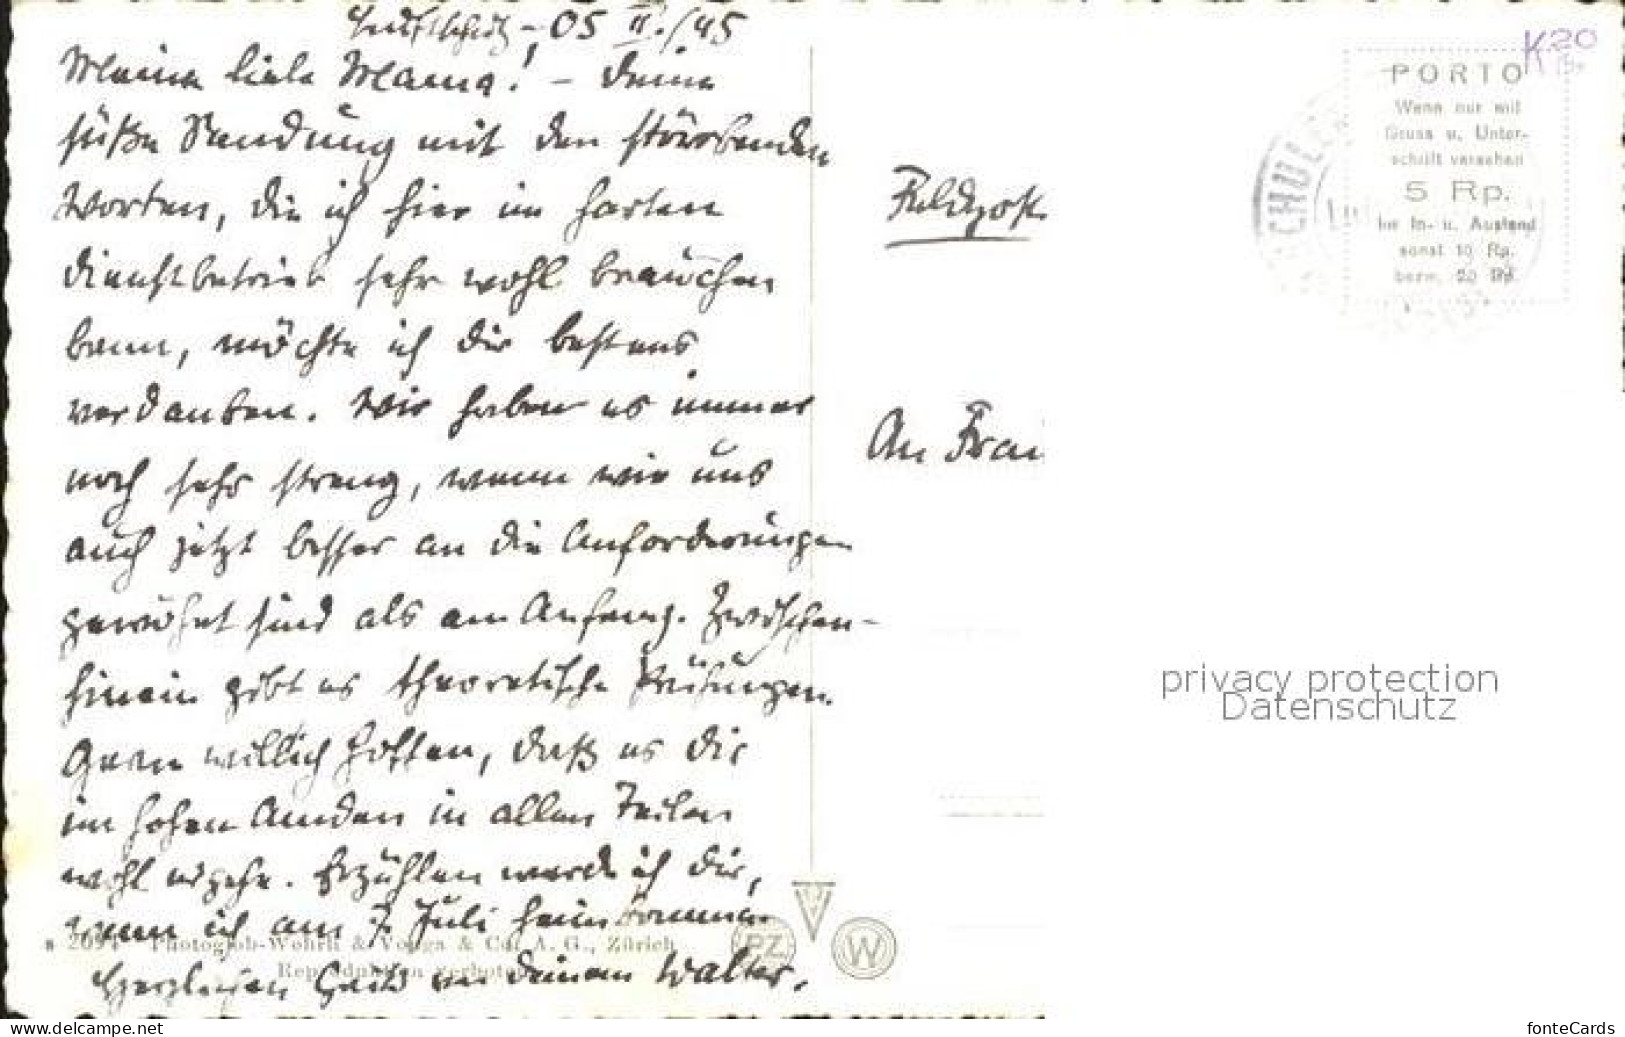 Luftschutz-OS II./45
Meine liebe Mama! – Deine
süße Sendung mit den stärkenden
Worten, die ich hier im harten
Dienstbetrieb sehr wohl brauchen
kann, möchte ich Dir bestens
verdanken. Wir haben es immer
noch sehr streng, wenn wir uns
auch jetzt besser an die Anforderungen
gewöhnt sind als am Anfang. Zwischen-
hinein gibt es theoretische Prüfungen.
Gern will ich hoffen, daß es Dir
im hohen Amden in allen Teilen
wohl ergehe. Erzählen werde ich Dir,
wenn ich am 7. Juli heimkomme.
Herzlichen Gruß von Deinem Walter.
Photoglob-Wehrli & Vouga & Co. A. G., Zürich
Reproduktion verboten
PZ
W
Feldpost
An Frau
PORTO
Wenn nur mit
Gruss u. Unter-
schrift versehen
5 Rp.
Im In- u. Ausland
sonst 10 Rp.
bezw. 20 Rp.
K 20
privacy protection
Datenschutz
www.delcampe.net
fonteCards